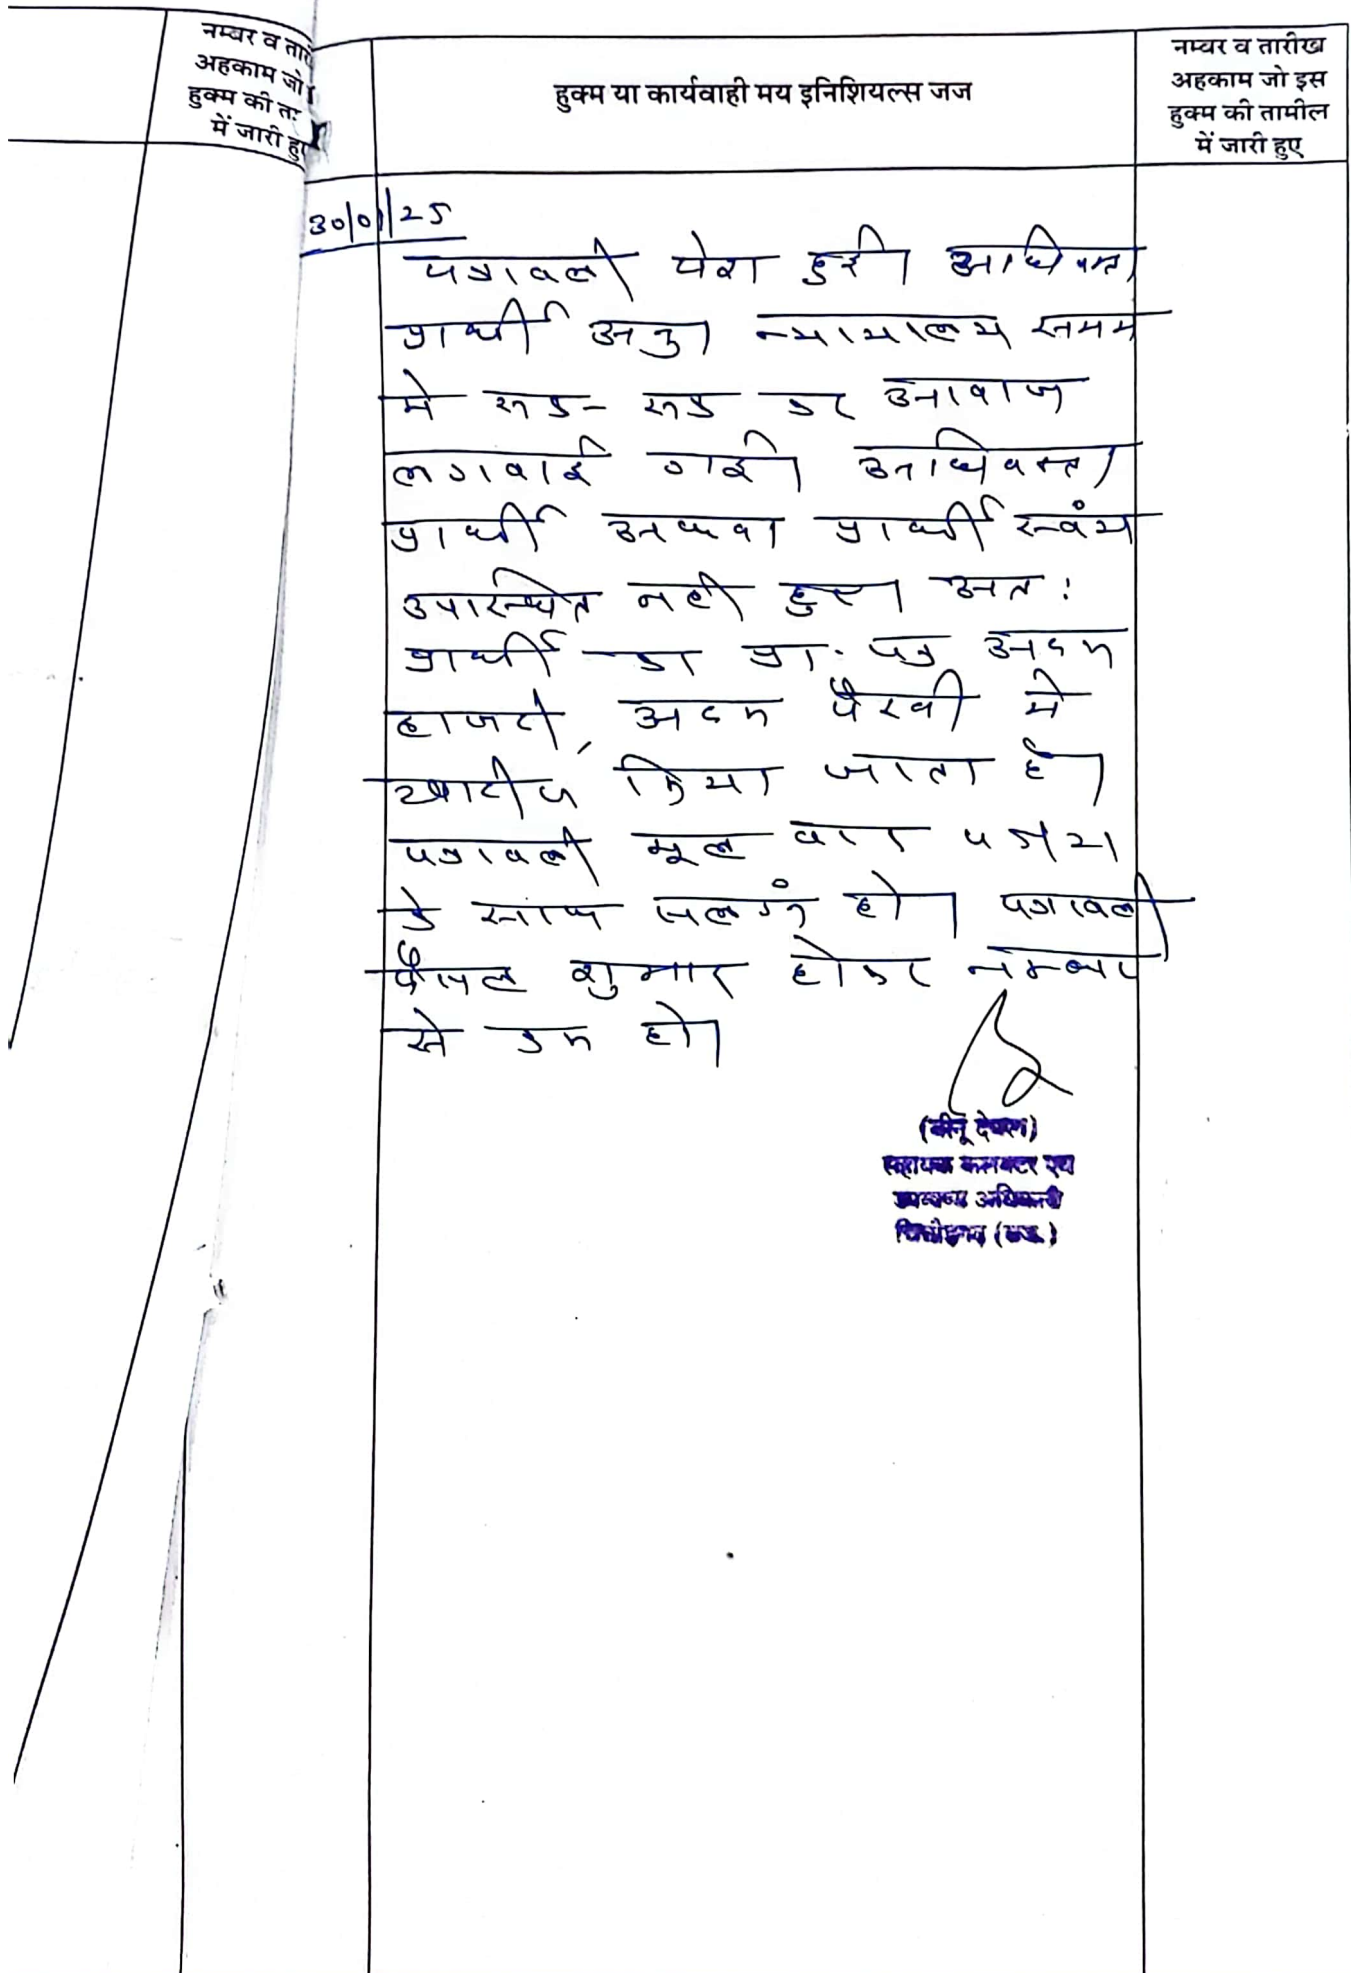 नम्बर व तारी
अहकाम जो
हुक्म की ता
में जारी हुए
हुक्म या कार्यवाही मय इनिशियल्स जज
नम्बर व तारीख
अहकाम जो इस
हुक्म की तामील
में जारी हुए
30/01/25
पत्रावली पेश हुई। अधिवक्ता
प्रार्थी अनु। न्यायालय समय
मे रूक- रूक कर आवाज
लगवाई गई। अधिवक्ता
प्रार्थी अथवा प्रार्थी स्वंय
उपस्थित नही हुए। अत:
प्रार्थी का प्रा. पत्र अदम
हाजरी, अदम पैरवी मे
खारीज किया जाता है।
पत्रावली मूल वाद
के साथ सलग्नं हो। पत्रावली
फैसल शुमार होकर नम्बर
से कम हो।
(बीनू देवल)
सहायक कलक्टर एवं
उपखण्ड अधिकारी